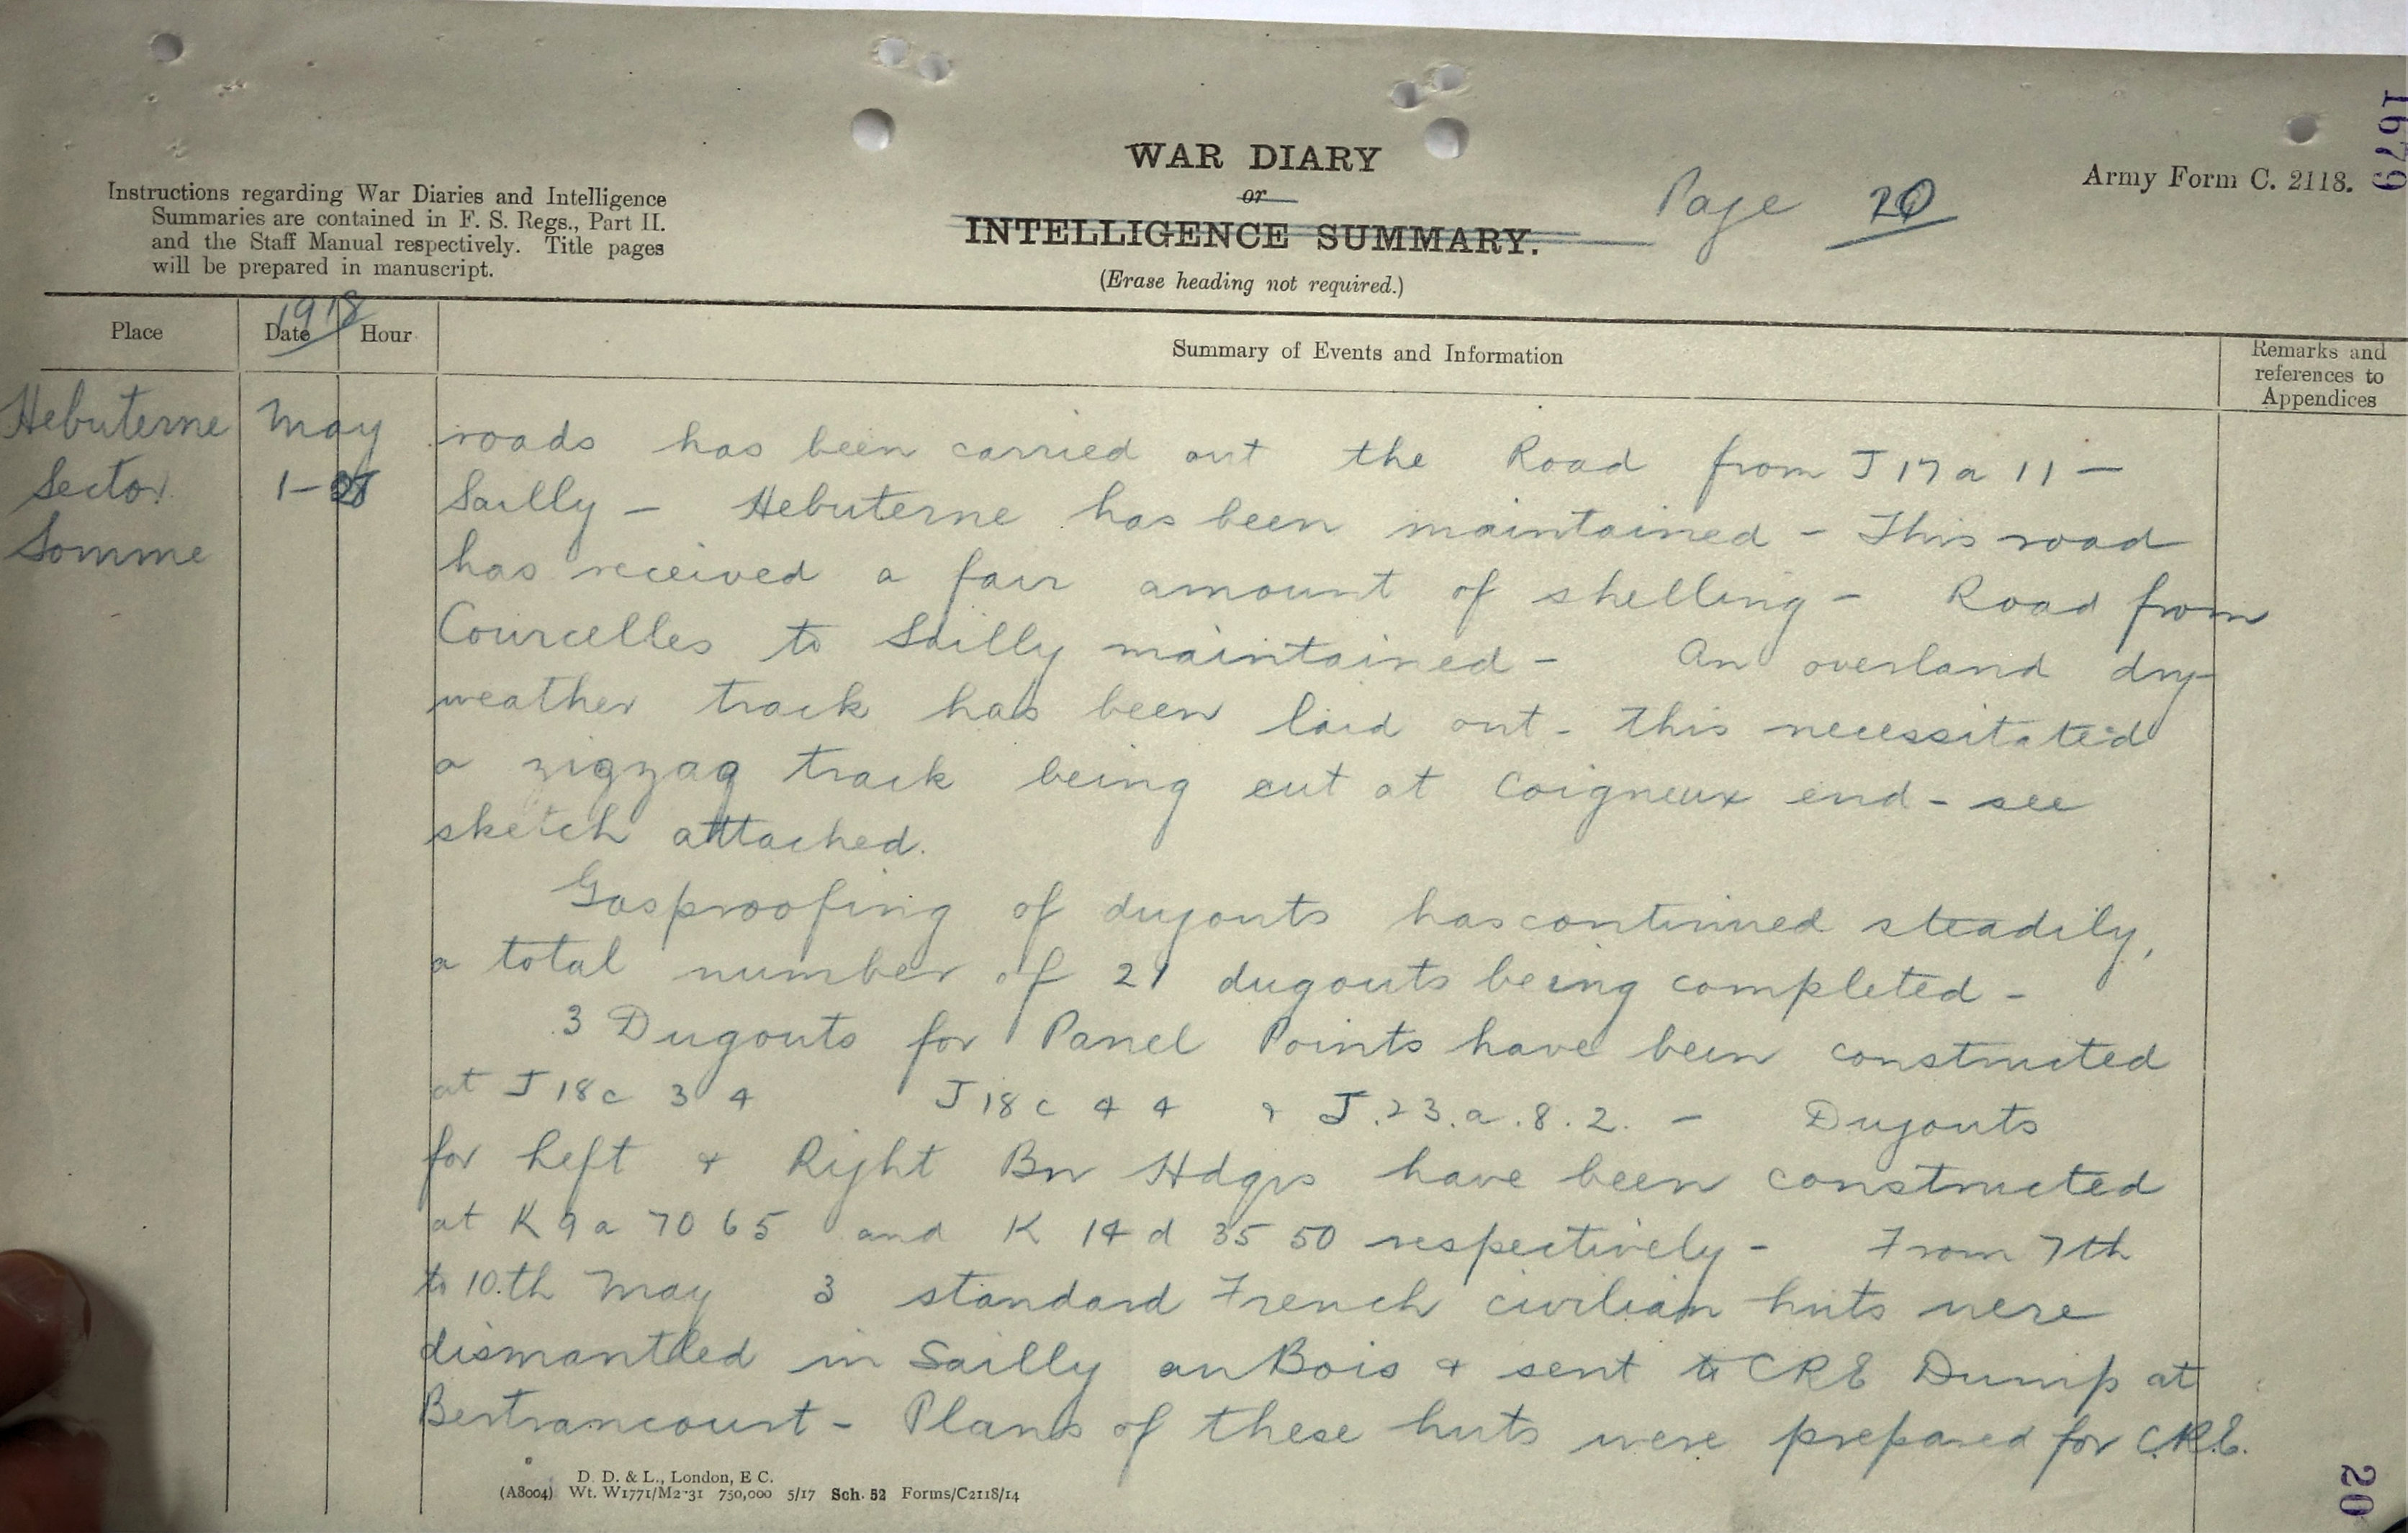 1679
Instructions regarding War Diaries and Intelligence
Summaries are contained in F. S. Regs., Part II.
and the Staff Manual respectively. Title pages
will be prepared in manuscript.
WAR DIARY
or
INTELLIGENCE SUMMARY.
(Erase heading not required.)
Page 20
Army Form C. 2118.
1918
Place Date Hour Summary of Events and Information Remarks and
references to
Appendices
Hebuterne
Sector.
Somme
May
1-28
roads has been carried out the Road from J 17 a 11 —
Sailly - Hebuterne has been maintained - This road
has received a fair amount of shelling - Road from
Courcelles to Sailly maintained - An overland dry
weather track has been laid out - this necessitated
a zigzag track being cut at Coigneux end - see
sketch attached.
Gasproofing of dugouts has continued steadily,
a total number of 21 dugouts being completed -
3 Dugouts for Panel Points have been constructed
at J 18c 3 4 J 18 c 4 4 & J.23.a.8.2. - Dugouts
for Left & Right Bn Hdqrs have been constructed
at K 9 a 70 65 and K 14 d 35 50 respectively - From 7th
to 10.th May 3 standard French civilian huts were
dismantled in Sailly au Bois & sent to CRE Dump at
Bertrancourt - Plans of these huts were prepared for C.R.E.
D. D. & L., London, E C.
(A8004) Wt. W1771/M2·31 750,000 5/17 Sch. 52 Forms/C2118/14
20